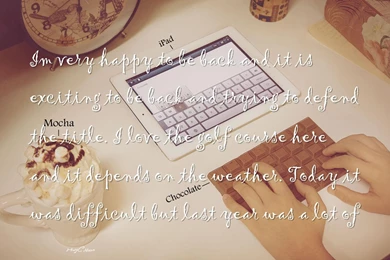 iPad
Im very happy to be back and it is
exciting to be back and trying to defend
the title. I love the golf course here
Mocha
and it depends on the weather. Today it
Chocolate
was difficult but last year was a lot of